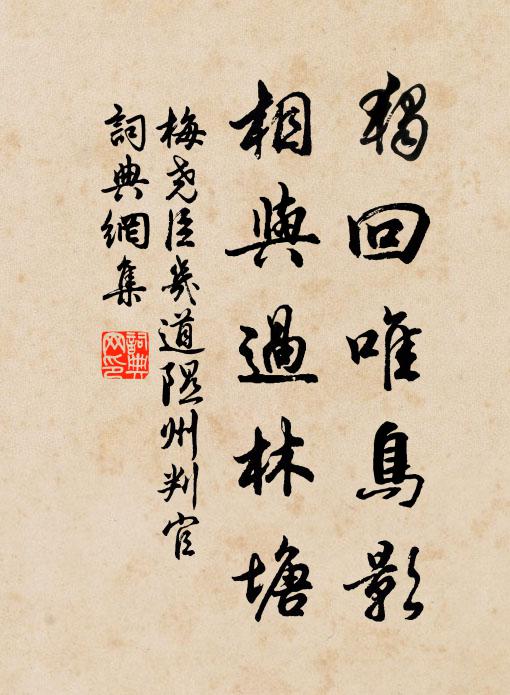 獨回唯鳥影
相與過林塘
梅堯臣幾道隰州判官
詞典網集
詞典网印